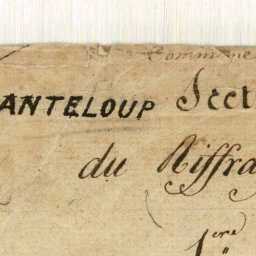 Commune
ANTELOUP Sect
du Riffra
1ere